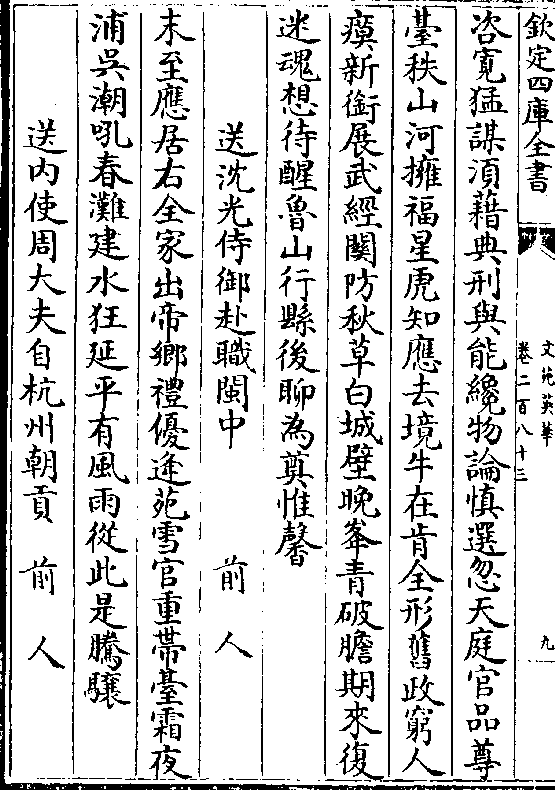 欽定四庫全書
文苑英華
卷二百八十三
九
咨寛猛謀湏藉典刑與能纔物論慎選忽天庭官品尊
臺秩山河擁福星虎知應去境牛在肯全形舊政窮人
瘼新銜展武經關防秋草白城壁晚峯青破膽期來復
迷魂想待醒魯山行縣後聊為奠惟馨
送沈光侍御赴職閩中 前人
末至應居右全家出帝鄉禮優逢苑雪官重帯臺霜夜
浦吳潮吼春灘建水狂延平有風雨從此是騰驤
送内使周大夫自杭州朝貢 前人